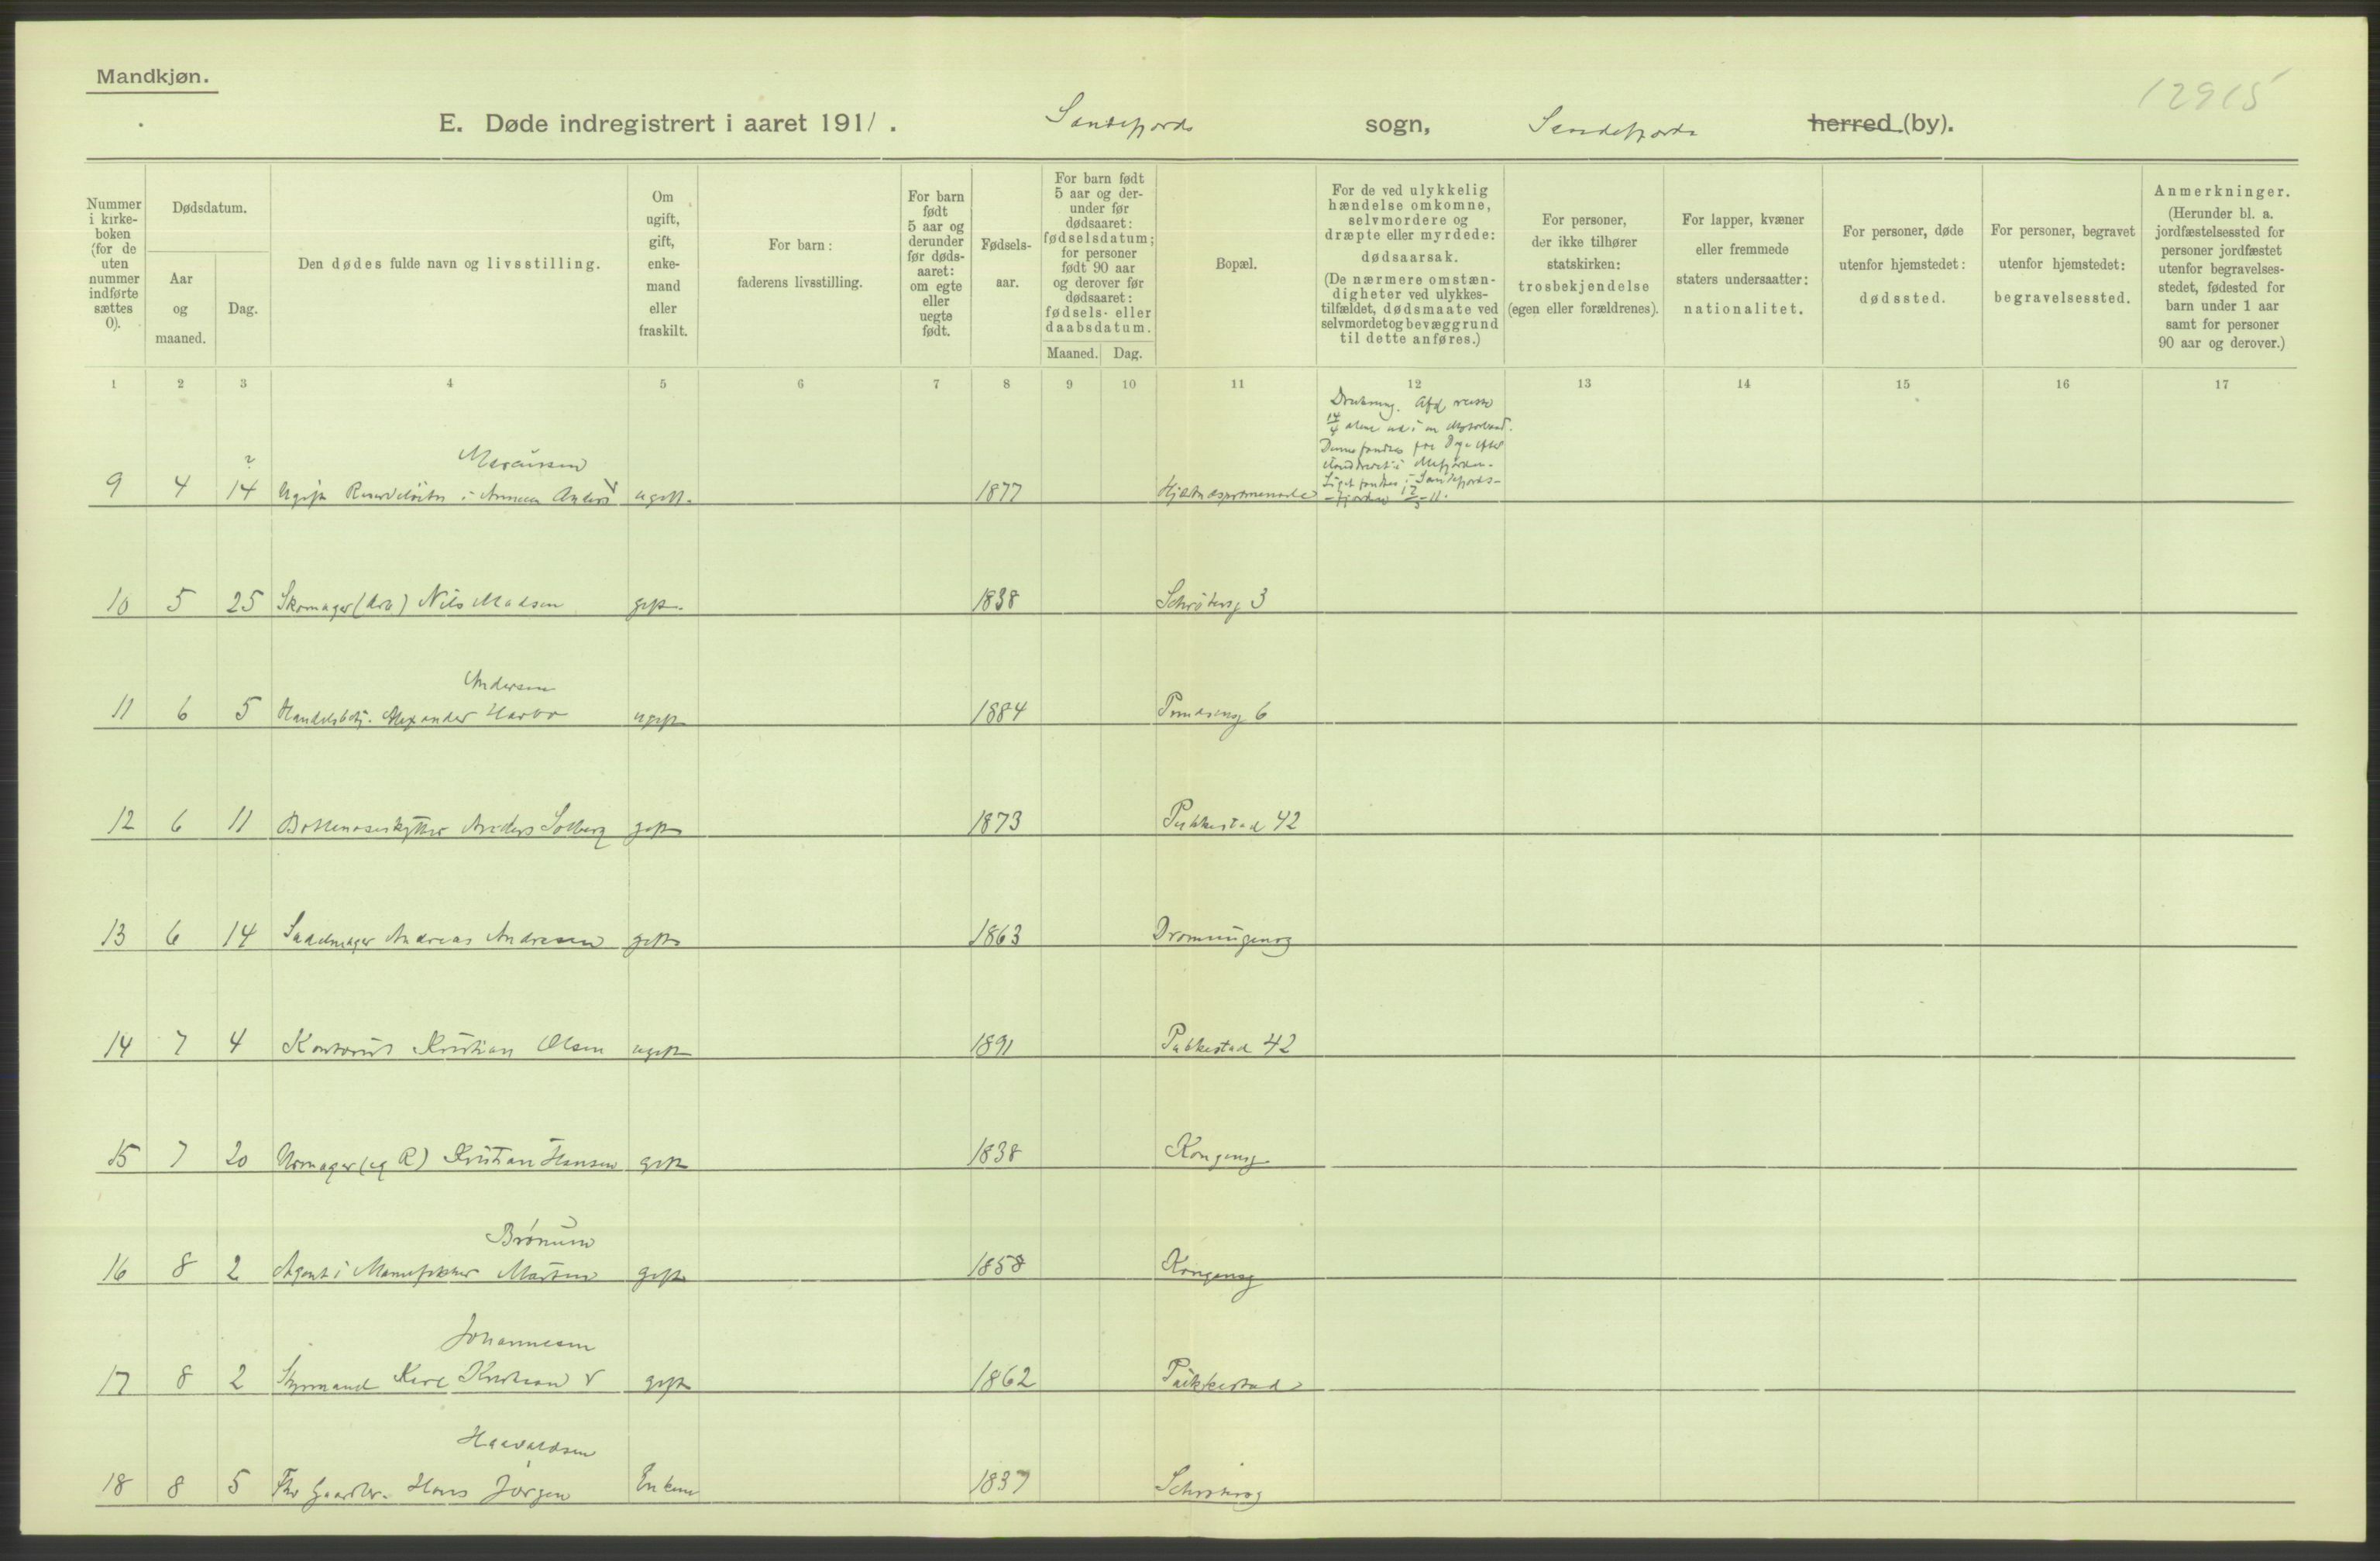 Mandkjøn.
12915
E. Døde indregistrert i aaret 1911. Sandefjords sogn, Sandefjords herred (by).
Nummer i kirkeboken (for de uten nummer indførte sættes 0).
Dødsdatum.
Aar og maaned.
Dag.
Den dødes fulde navn og livsstilling.
Om ugift, gift, enkemand eller fraskilt.
For barn: faderens livsstilling.
For barn født 5 aar og derunder før dødsaaret: om egte eller uegte født.
Fødselsaar.
For barn født 5 aar og derunder før dødsaaret: fødselsdatum; for personer født 90 aar og derover før dødsaaret: fødsels- eller daabsdatum.
Maaned. Dag.
Bopæl.
For de ved ulykkelig hændelse omkomne, selvmordere og dræpte eller myrdede: dødsaarsak. (De nærmere omstændigheter ved ulykkestilfældet, dødsmaate ved selvmordet og bevæggrund til dette anføres.)
For personer, der ikke tilhører statskirken: trosbekjendelse (egen eller forældrenes).
For lapper, kvæner eller fremmede staters undersaatter: nationalitet.
For personer, døde utenfor hjemstedet: dødssted.
For personer, begravet utenfor hjemstedet: begravelsessted.
Anmerkninger. (Herunder bl. a. jordfæstelsessted for personer jordfæstet utenfor begravelsesstedet, fødested for barn under 1 aar samt for personer 90 aar og derover.)
1 2 3 4 5 6 7 8 9 10 11 12 13 14 15 16 17
Drukning. Afd. reiste
14/4 alene ud i en Motorbaad.
Denne fandtes
Liget fandtes i Sandefjords-
-fjorden 12/5-11.
?
9 4 14 Anders ugift. 1877 Hjertnespromenade
10 5 25 Skomager Nils Madsen gift. 1838 Schrøtersg 3
Andersen
11 6 5 Handelsbetj. Alexander Harbo ugift 1884 6
12 6 11 Bottlenoseskytter Anders Solberg gift 1873 Pukkestad 42
13 6 14 Sadelmager Andreas Andresen gift 1863 Dronningensg
14 7 4 Kontorist Kristian Olsen ugift 1891 Pukkestad 42
15 7 20 Urmager Kristian Hansen gift 1838 Kongensg
16 8 2 Agent i Manufaktur gift 1858 Kongensg
Johannesen
17 8 2 Styrmand Karl Kristian gift 1862 Pukkestad
Haavaldsen
18 8 5 Hans Jørgen Enkem 1837 Schrøtersg